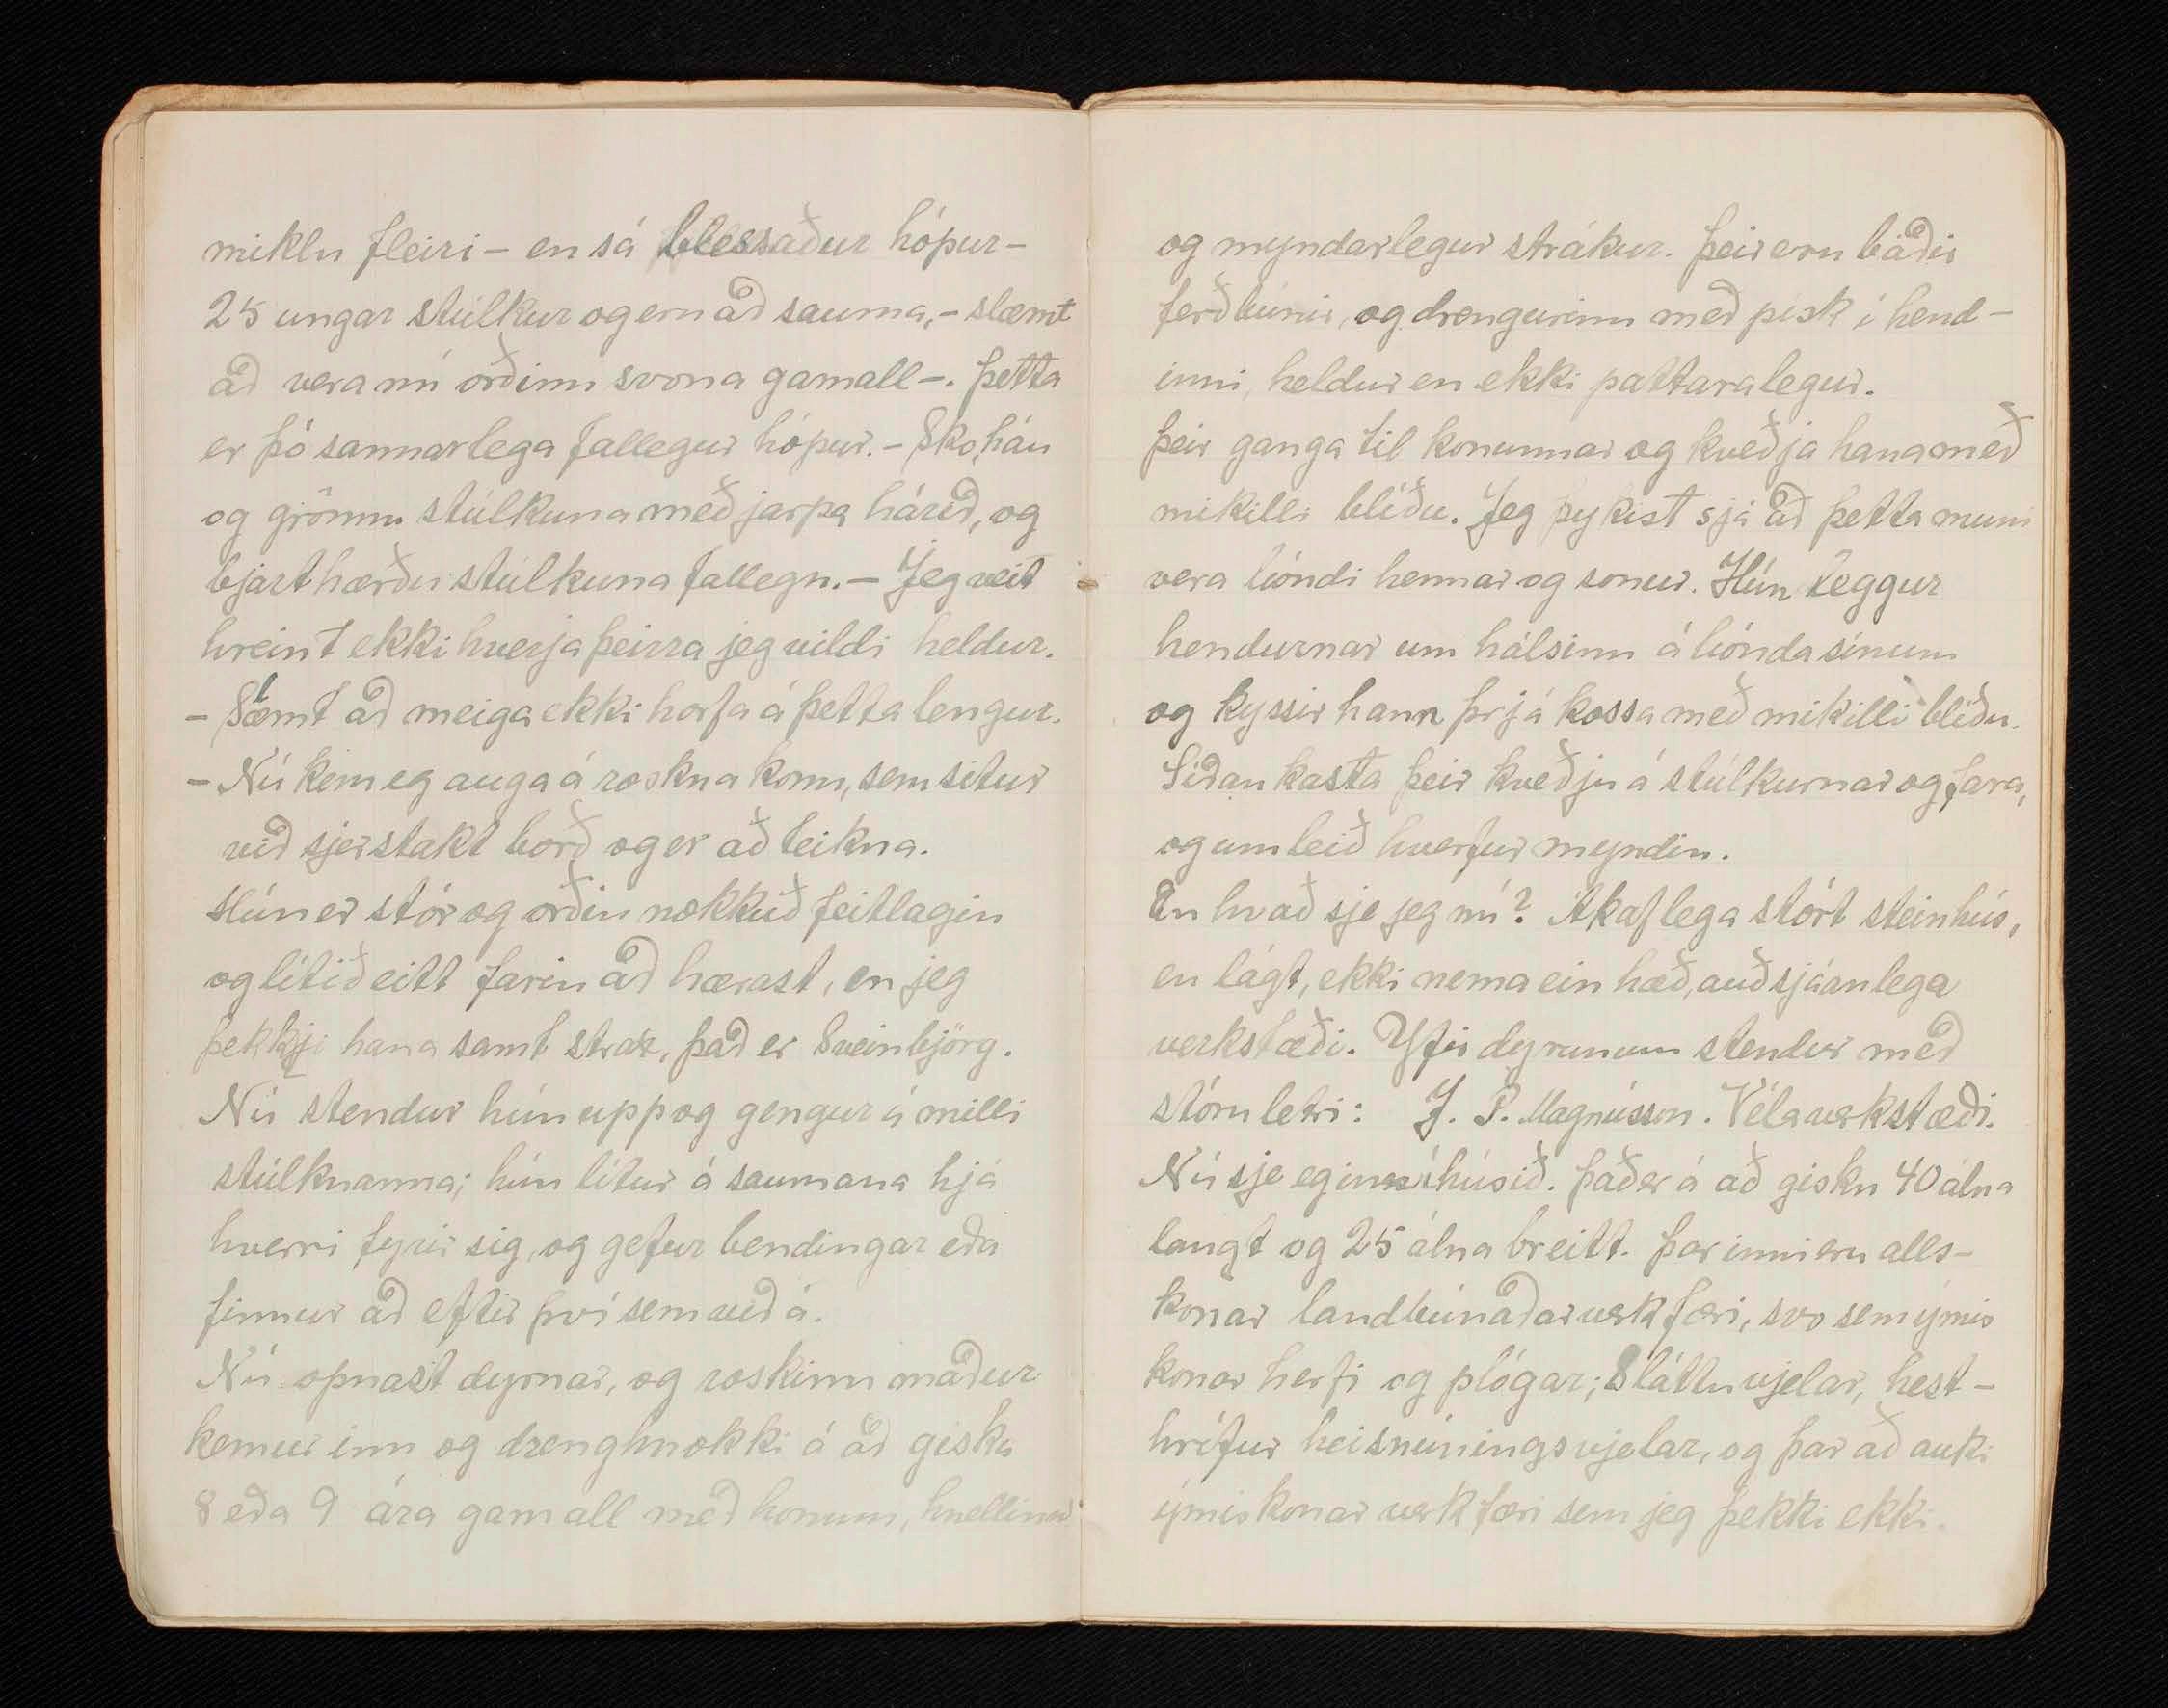 miklu fleiri – en sá blessaður hópur –
25 ungar stúlkur og eru að sauma, – slæmt
að vera nú orðinn svona gamall –. Þetta
er þó sannarlega fallegur hópur. – Sko, háu
og grönnu stúlkuna með jarpa hárið, og
bjarthærðu stúlkuna fallegu. – Jeg veit
hreint ekki hverja þeirra jeg vildi heldur.
– Slæmt að meiga ekki horfa á þetta lengur.
– Nú kem eg auga á roskna konu, sem situr
við sjerstakt borð og er að teikna.
Hún er stór og orðin nokkuð feitlagin
og lítið eitt farin að hærast, en jeg
þekkji hana samt strax, það er Sveinbjörg.
Nú stendur hún upp og gengur á milli
stúlknanna; hún lítur á saumana hjá
hverri fyrir sig, og gefur bendingar eða
finnur að eftir því sem við á.
Nú opnast dyrnar, og roskinn maður
kemur inn og drenghnokki á að giska
8 eða 9 ára gamall með honum, hnellinn
og myndarlegur strákur. Þeir eru báðir
ferðbúnir, og drengurinn með písk í hend-
inni, heldur en ekki pattaralegur.
Þeir ganga til konunnar og kveðja hana með
mikilli blíðu. Jeg þykist sjá að þetta muni
vera bóndi hennar og sonur. Hún leggur
hendurnar um hálsinn á bónda sínum
og kyssir hann þrjá kossa með mikilli blíðu.
Síðan kasta þeir kveðju á stúlkurnar og fara,
og um leið hverfur myndin.
En hvað sje jeg nú? Ákaflega stórt steinhús,
en lágt, ekki nema ein hæð, auðsjáanlega
verkstæði. Yfir dyrunum stendur með
stóru letri: J. P. Magnússon. Vélaverkstæði.
Nú sje eg inn í húsið. Það er á að gisku 40 álna
langt og 25 álna breitt. Þar inni eru alls-
konar landbúnaðarverkfæri, svo sem ýmis
konar herfi og plógar; Sláttuvjelar, hest-
hrífur heisnúningsvjelar, og þar að auki
ýmiskonar verkfæri sem jeg þekki ekki.